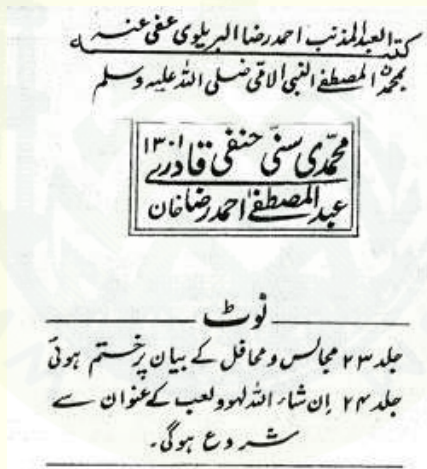 کتبہ العبد المذنب احمد رضا البریلوی عفی عنہ
بمحمدن المصطفٰے النبی الامّی صلی اللہ علیہ وسلم
محمّدی سنّی حنفی قادری ۱۳۰۱
عبدالمصطفٰے احمد رضا خان
نوٹ
جلد ۲۳ مجالس ومحافل کے بیان پرختم ہوئی
جلد ۲۴ اِن شاء اللہ لہو ولعب کے عنوان سے
شروع ہوگی۔